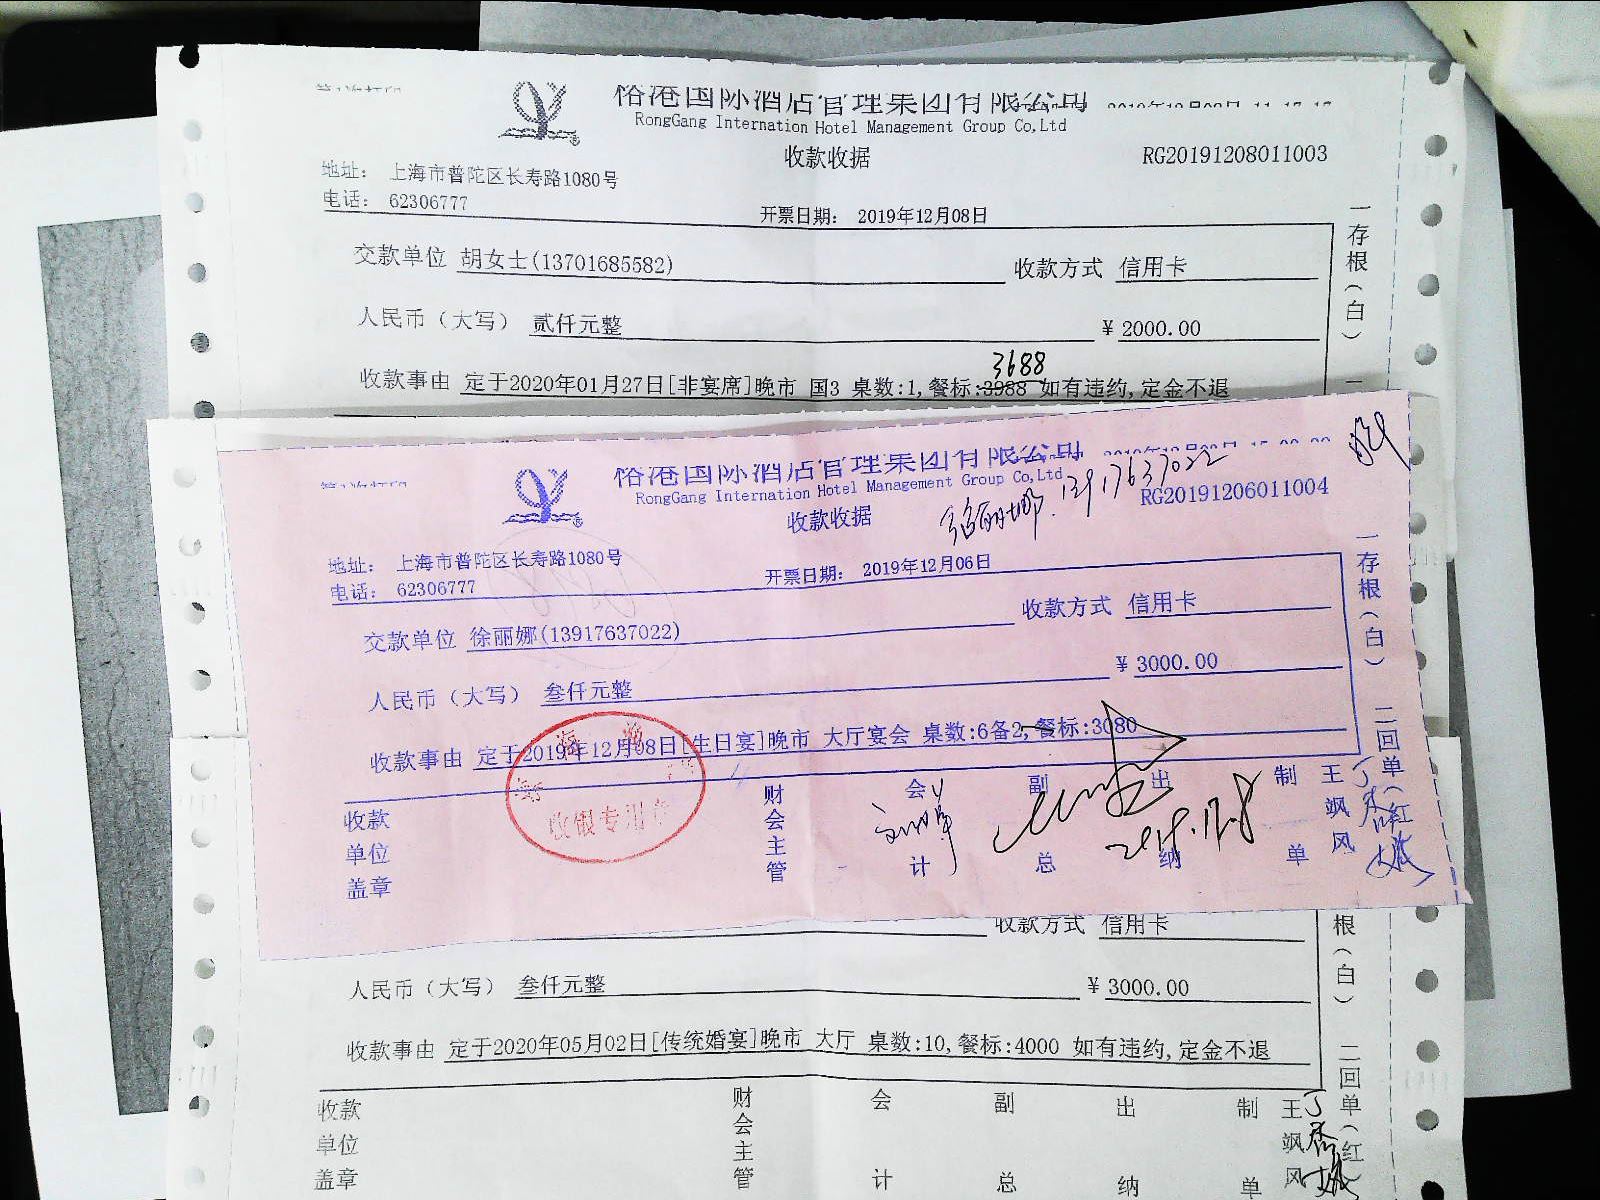 裕港国际酒店管理集团有限公司
RongGang Internation Hotel Management Group Co,Ltd
收款收据
RG20191208011003
地址： 上海市普陀区长寿路1080号
电话： 62306777
开票日期： 2019年12月08日
交款单位 胡女士(13701685582)
收款方式 信用卡
人民币（大写） 贰仟元整
¥ 2000.00
3688
收款事由 定于2020年01月27日[非宴席]晚市 国3 桌数:1,餐标:3988 如有违约,定金不退
一存根（白）
裕港国际酒店管理集团有限公司
RongGang Internation Hotel Management Group Co,Ltd
收款收据
徐丽娜 13917637022
RG20191206011004
地址： 上海市普陀区长寿路1080号
电话： 62306777
开票日期： 2019年12月06日
交款单位 徐丽娜(13917637022)
收款方式 信用卡
人民币（大写） 叁仟元整
¥ 3000.00
收款事由 定于2019年12月08日[生日宴]晚市 大厅宴会 桌数:6备2,餐标:3080
一存根（白） 二回单（红
收银专用章
收款单位盖章
财会主管
会计
副总
出纳
制单
王飒风
2019.12.8
收款方式 信用卡
根（白） 二回单（红
人民币（大写） 叁仟元整
¥ 3000.00
收款事由 定于2020年05月02日[传统婚宴]晚市 大厅 桌数:10,餐标:4000 如有违约,定金不退
收款单位盖章
财会主管
会计
副总
出纳
制单
王飒风